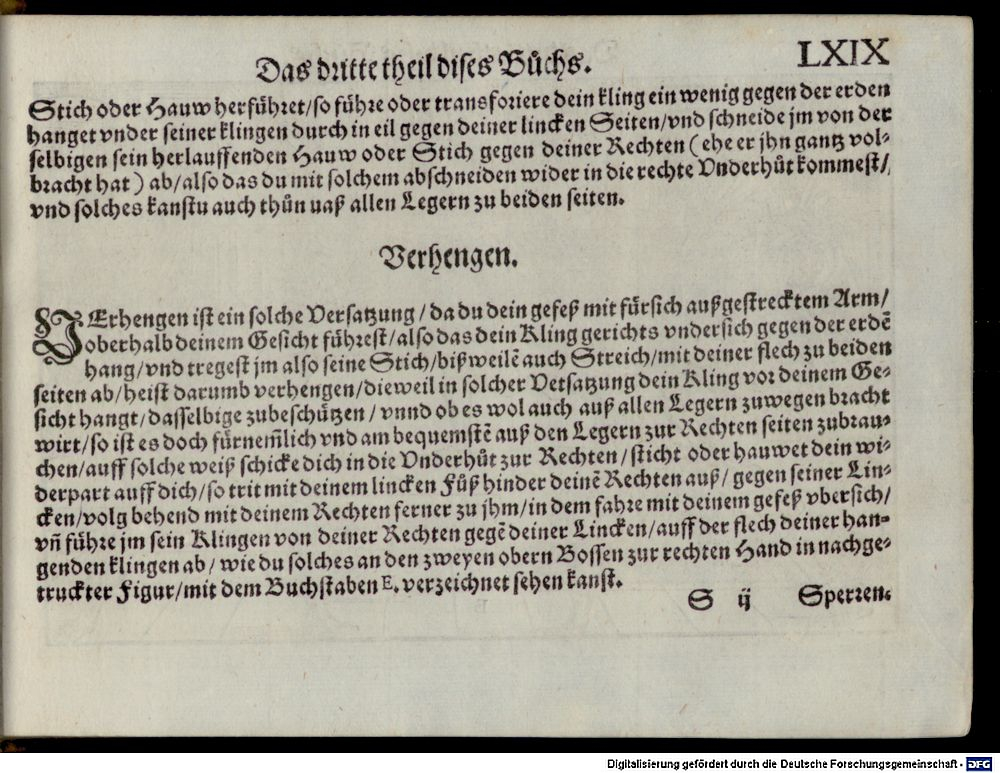 Das dritte theil dises Bůchs. LXIX
Stich oder Hauw herführet/so führe oder transforiere dein kling ein wenig gegen der erden
hanget vnder seiner klingen durch in eil gegen deiner lincken Seiten/vnd schneide jm von der
selbigen sein herlauffenden Hauw oder Stich gegen deiner Rechten (ehe er jhn gantz vol-
bracht hat) ab/also das du mit solchem abschneiden wider in die rechte Vnderhůt kommest/
vnd solches kanstu auch thůn uaß allen Legern zu beiden seiten.
Verhengen.
VErhengen ist ein solche Versatzung/da du dein gefeß mit fürsich außgestrecktem Arm/
oberhalb deinem Gesicht führest/also das dein Kling gerichts vndersich gegen der erdē
hang/vnd tregest jm also seine Stich/bißweilē auch Streich/mit deiner flech zu beiden
seiten ab/heist darumb verhengen/dieweil in solcher Vetsatzung dein Kling vor deinem Ge-
sicht hangt/dasselbige zubeschützen/vnnd ob es wol auch auß allen Legern zuwegen bracht
wirt/so ist es doch fürnem̄lich vnd am bequemstē auß den Legern zur Rechten seiten zubrau-
chen/auff solche weiß schicke dich in die Vnderhůt zur Rechten/sticht oder hauwet dein wi-
derpart auff dich/so trit mit deinem lincken Fůß hinder deinē Rechten auß/gegen seiner Lin-
cken/volg behend mit deinem Rechten ferner zu jhm/in dem fahre mit deinem gefeß vbersich/
vn̄ führe jm sein Klingen von deiner Rechten gegē deiner Lincken/auff der flech deiner han-
genden klingen ab/wie du solches an den zweyen obern Bossen zur rechten Hand in nachge-
truckter Figur/mit dem Buchstaben E. verzeichnet sehen kanst.
S ij Sperren.
Digitalisierung gefördert durch die Deutsche Forschungsgemeinschaft - DFG